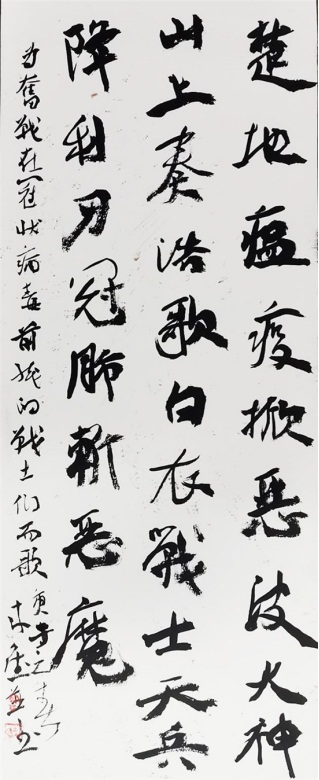 楚地瘟疫掀恶波火神
山上奏浩歌白衣戰士天兵
降利刃冠肺斬恶魔
为奮战在冠状病毒前线的战士们而歌
庚子之春